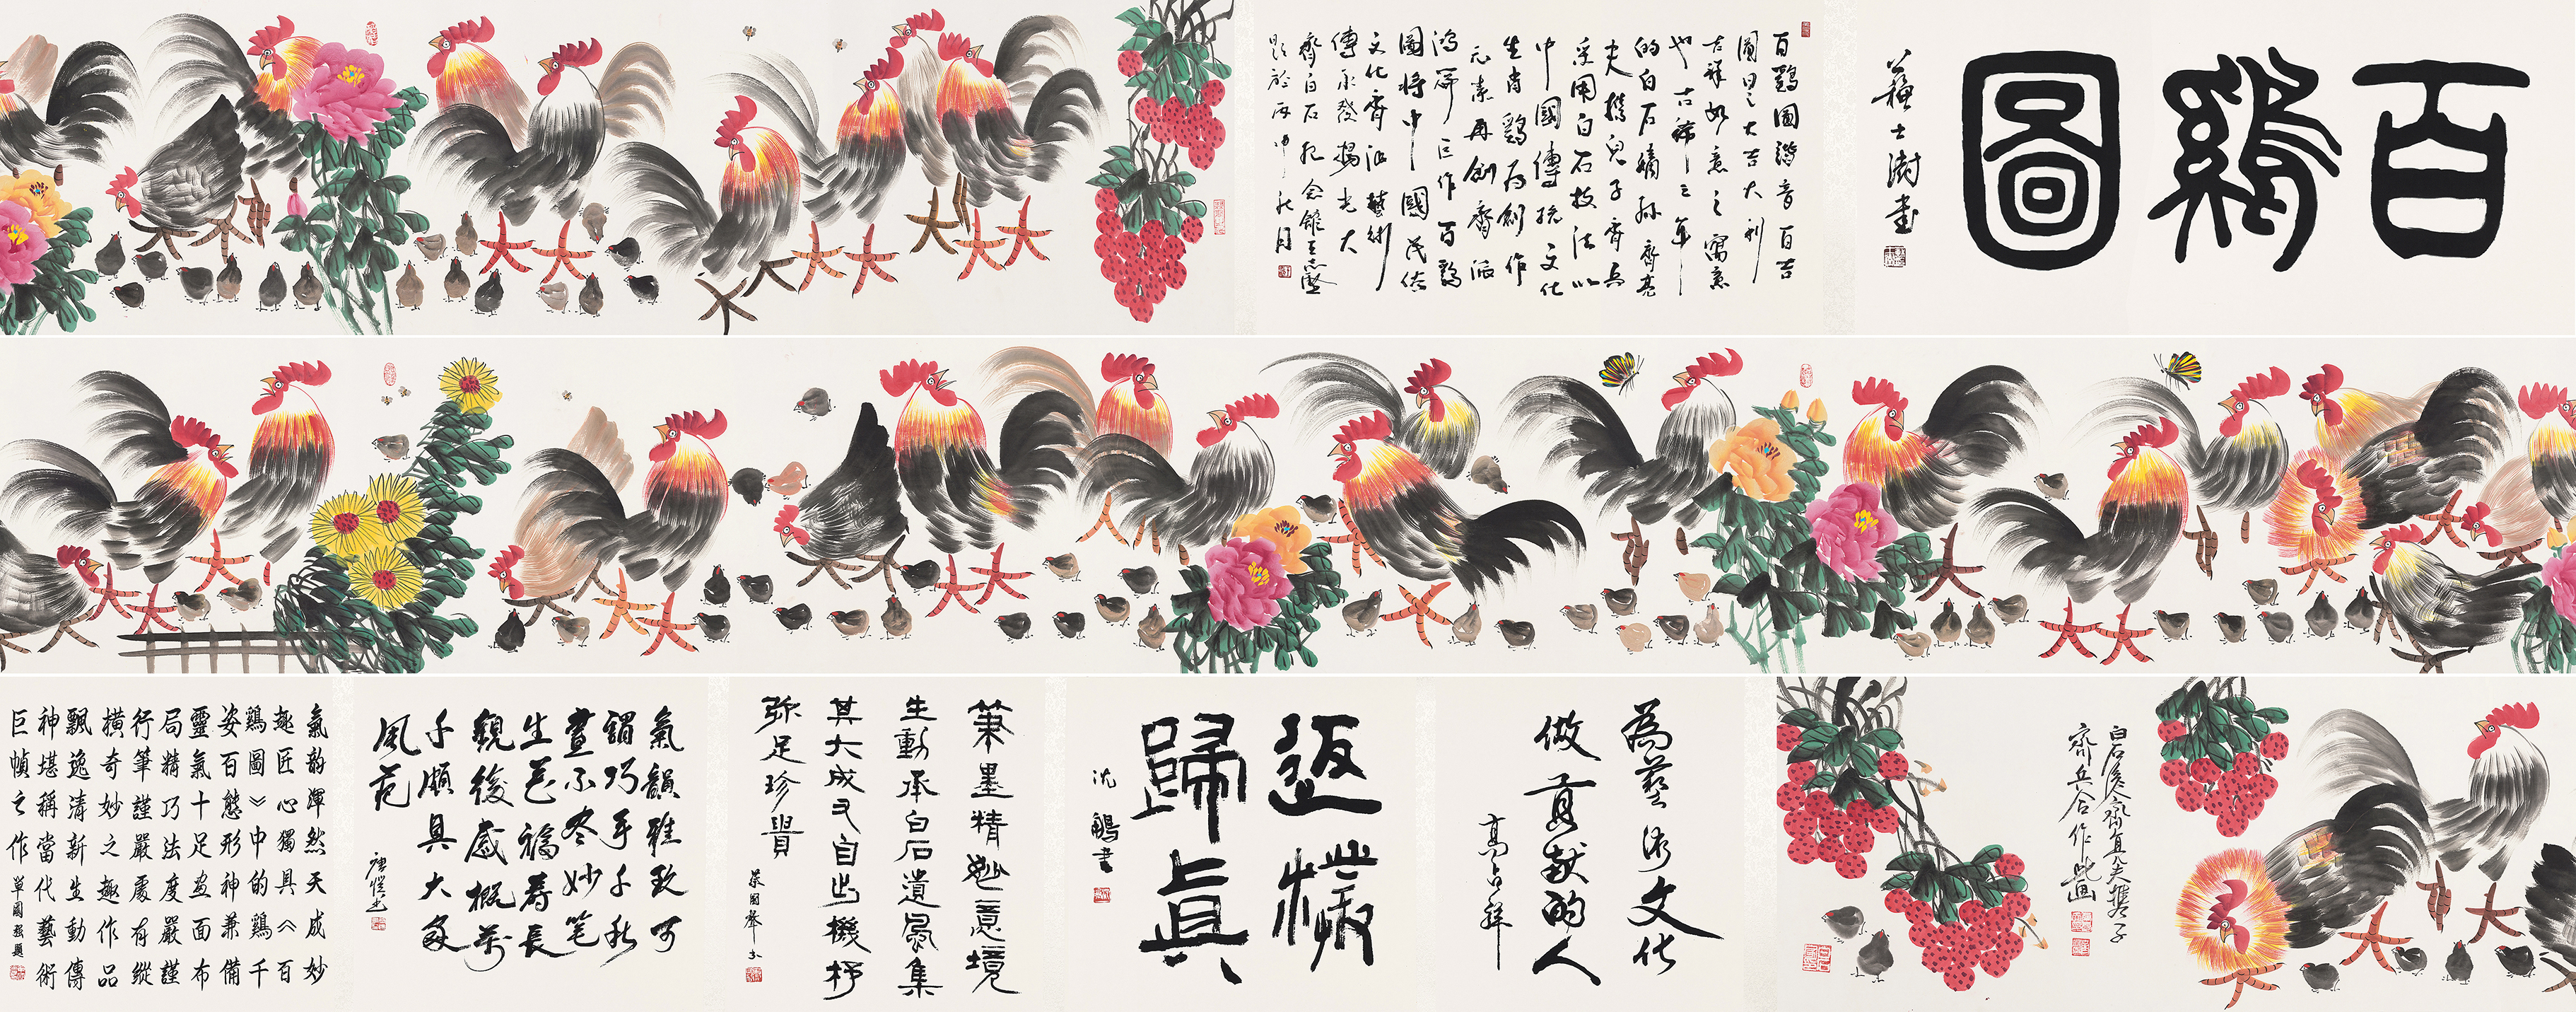 百鷄圖
蘇士澍書
百鷄圖諧音百吉
圖曰之大吉大利
吉祥如意之寓意
也古稀之年
的白石嫡孫齊真
夫攜兒子齊兵
采用白石技法以
中國傳統文化
生肖鷄為創作
元素再創齊派
鴻篇巨作百鷄
圖將中國民俗
文化齊派藝術
傳承發揚光大
齊白石紀念館王志堅
題於丙申秋月
白石後裔齊真夫攜子
齊兵合作此畫
為藝術文化
做貢獻的人
高占祥
返樸
歸真
沈鵬書
筆墨精妙意境
生動承白石遺風集
其大成又自出機杼
弥足珍貴
蔡國聲書
氣韻雅致可
謂巧手千秋
畫不盡妙笔
生花福壽長
觀後感概萬
千頗具大家
風范
氣韵渾然天成妙
趣匠心獨具《百
鷄圖》中的鷄千
姿百態形神兼備
靈氣十足畫面布
局精巧法度嚴謹
行筆謹嚴處有縱
橫奇妙之趣作品
飄逸清新生動傳
神堪稱當代藝術
巨幀之作 單國强題